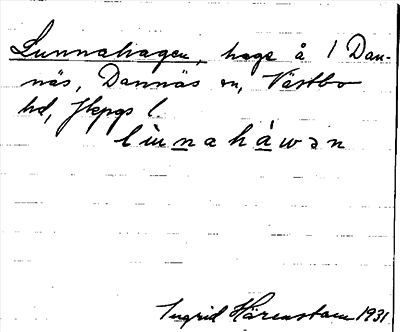 Lunnahagen, hage å 1 Dan-
näs, Dannäs sn, Västbo
hd, Jkpgs l.
lùnaháwən
Ingrid Härenstam 1931